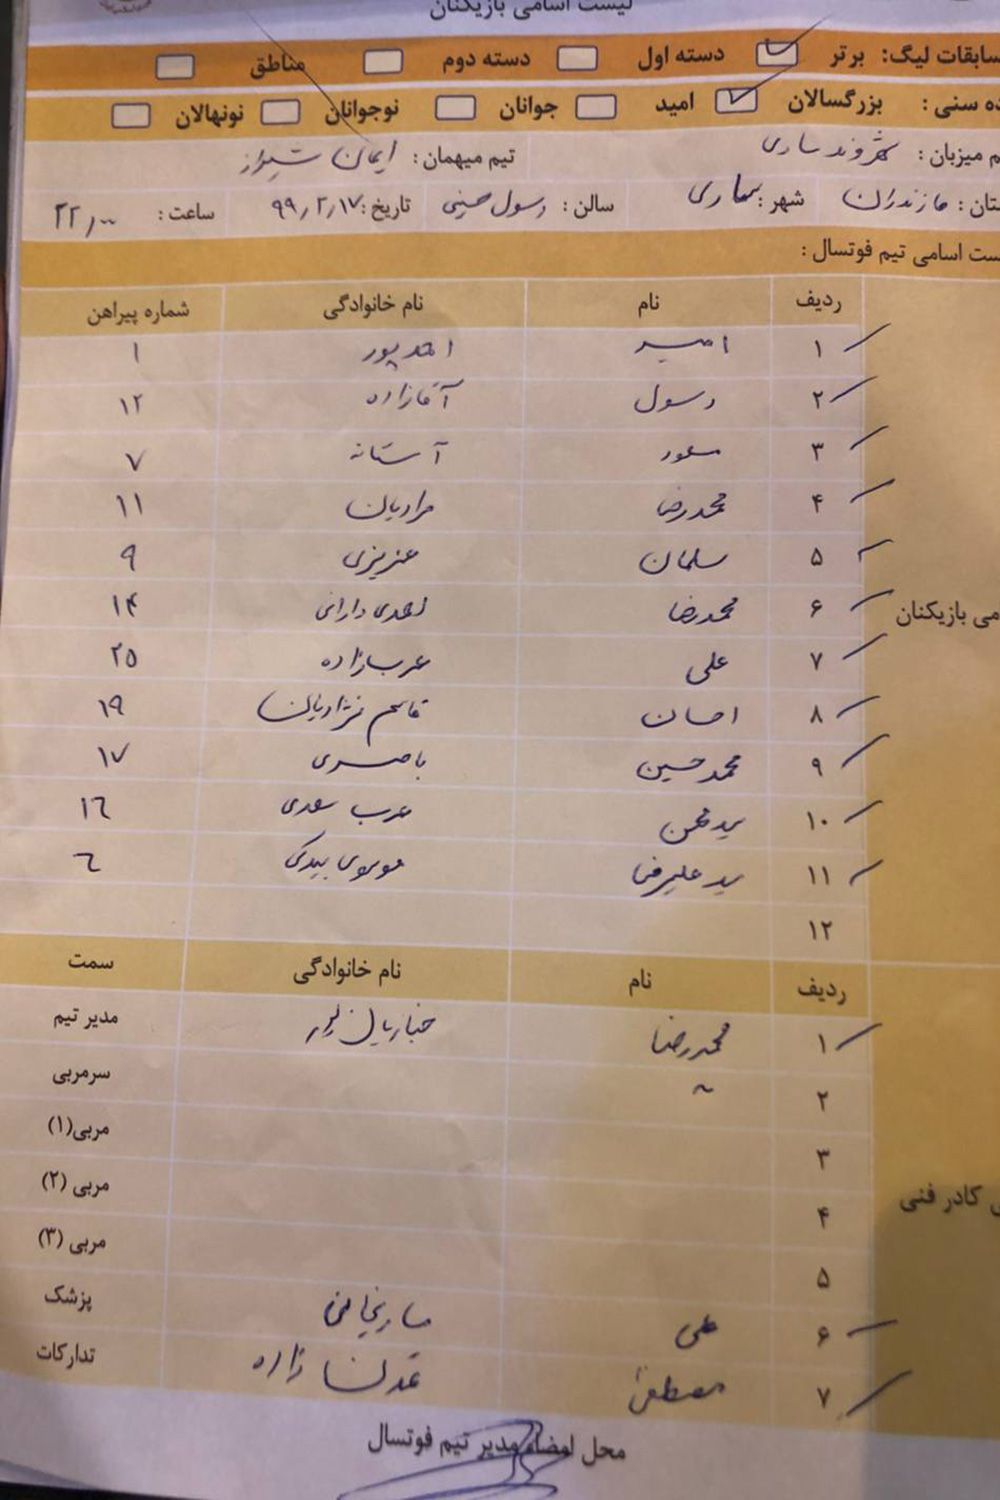 لیست اسامی بازیکنان
سابقات لیگ: برتر دسته اول دسته دوم مناطق
ده سنی: بزرگسالان امید جوانان نوجوانان نونهالان
م میزبان: شهروند ساری تیم میهمان: ایمان شیراز
ستان: مازندران شهر: ساری سالن: رسول حسینی تاریخ: ۹۹/۲/۱۷ ساعت: ۲۲/۰۰
ست اسامی تیم فوتسال:
ردیف نام نام خانوادگی شماره پیراهن
۱ امیر احمدپور ۱
۲ رسول آقازاده ۱۲
۳ مسعود آستانه ۷
۴ محمدرضا مرادیان ۱۱
۵ سلمان عزیزی ۹
۶ محمدرضا دارانی ۱۴
می بازیکنان
۷ علی عربزاده ۲۵
۸ احسان قاسم نژادیان ۱۹
۹ محمدحسین باصری ۱۷
۱۰ سیدمحسن عرب سعدی ۱۶
۱۱ سیدعلیرضا موسوی بیدکی ۶
۱۲
ردیف نام نام خانوادگی سمت
۱ محمدرضا مدیر تیم
۲ سرمربی
۳ مربی(۱)
۴ مربی (۲)
کادر فنی
۵ مربی (۳)
۶ علی پزشک
۷ مصطفی تدارکات
محل امضاء مدیر تیم فوتسال